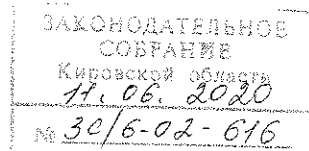 ЗАКОНОДАТЕЛЬНОЕ
СОБРАНИЕ
Кировской области
11.06.2020
№ 30/6-02-616